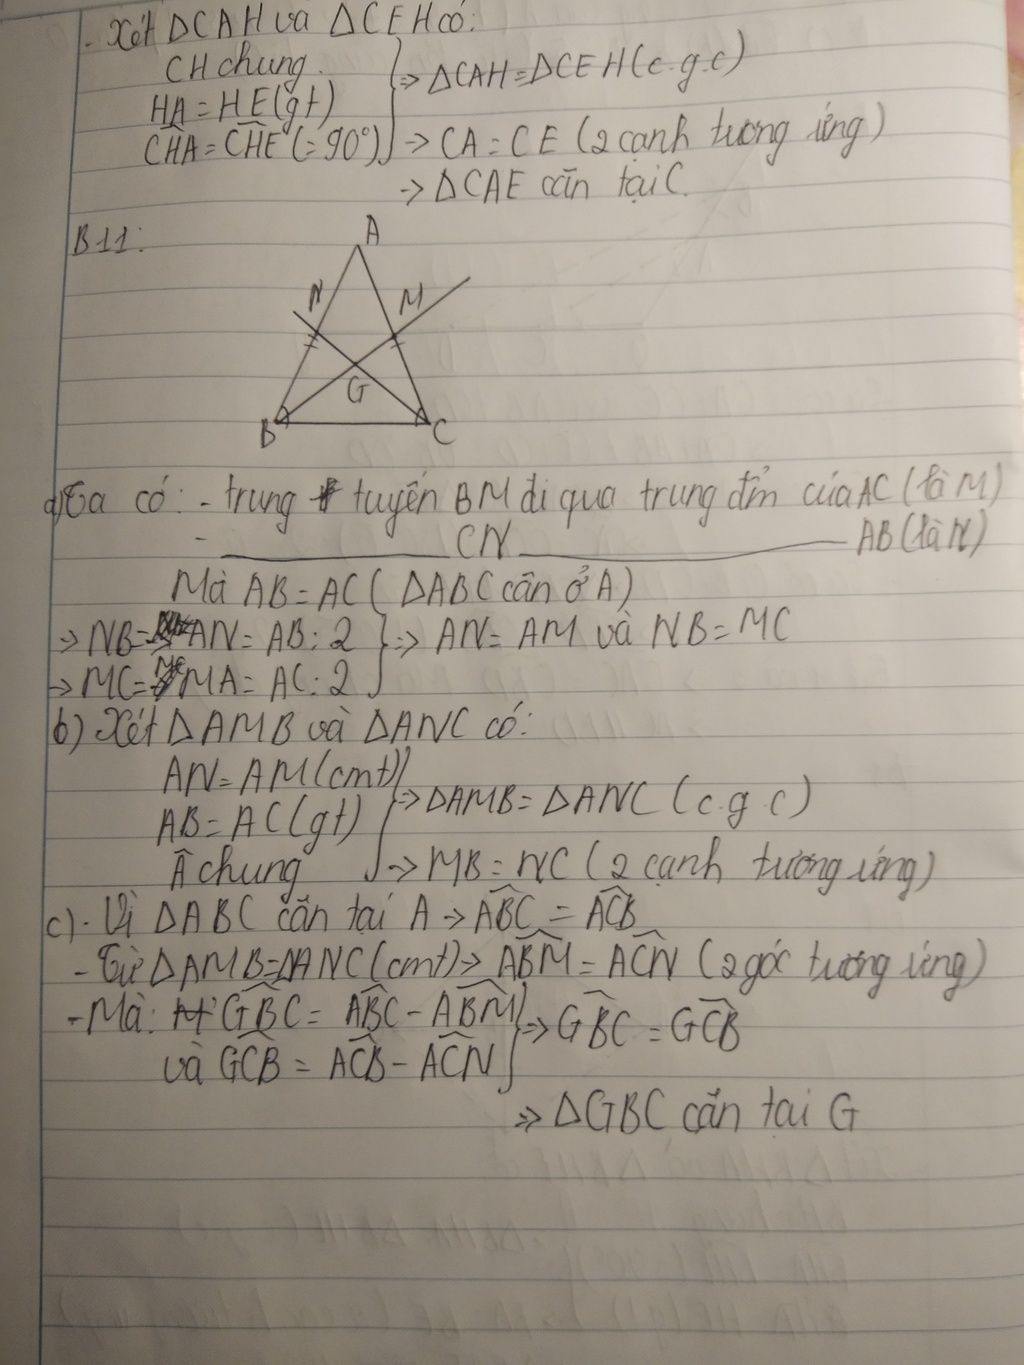 - Xét ΔCAH và ΔCEH có:
CH chung.
HA = HE (gt)
ĈHA = ĈHE (= 90°)
=> ΔCAH = ΔCEH (c.g.c)
-> CA = CE (2 cạnh tương ứng)
-> ΔCAE cân tại C.
B11:
A
N M
G
B C
a) Ta có: - trung tuyến BM đi qua trung đỉm của AC (là M)
- ______ CN ______ AB (là N)
Mà AB = AC (ΔABC cân ở A)
-> NB = AN = AB : 2
-> MC = MA = AC : 2
=> AN = AM và NB = MC
b) Xét ΔAMB và ΔANC có:
AN = AM (cmt)
AB = AC (gt)
Â chung
=> ΔAMB = ΔANC (c.g.c)
-> MB = NC (2 cạnh tương ứng)
c) - Vì ΔABC cân tại A -> ABĈ = ACB̂
- Từ ΔAMB = ΔANC (cmt) -> ABM̂ = ACN̂ (2 góc tương ứng)
- Mà: GBĈ = ABĈ - ABM̂
và GCB̂ = ACB̂ - ACN̂
=> GBĈ = GCB̂
=> ΔGBC cân tai G